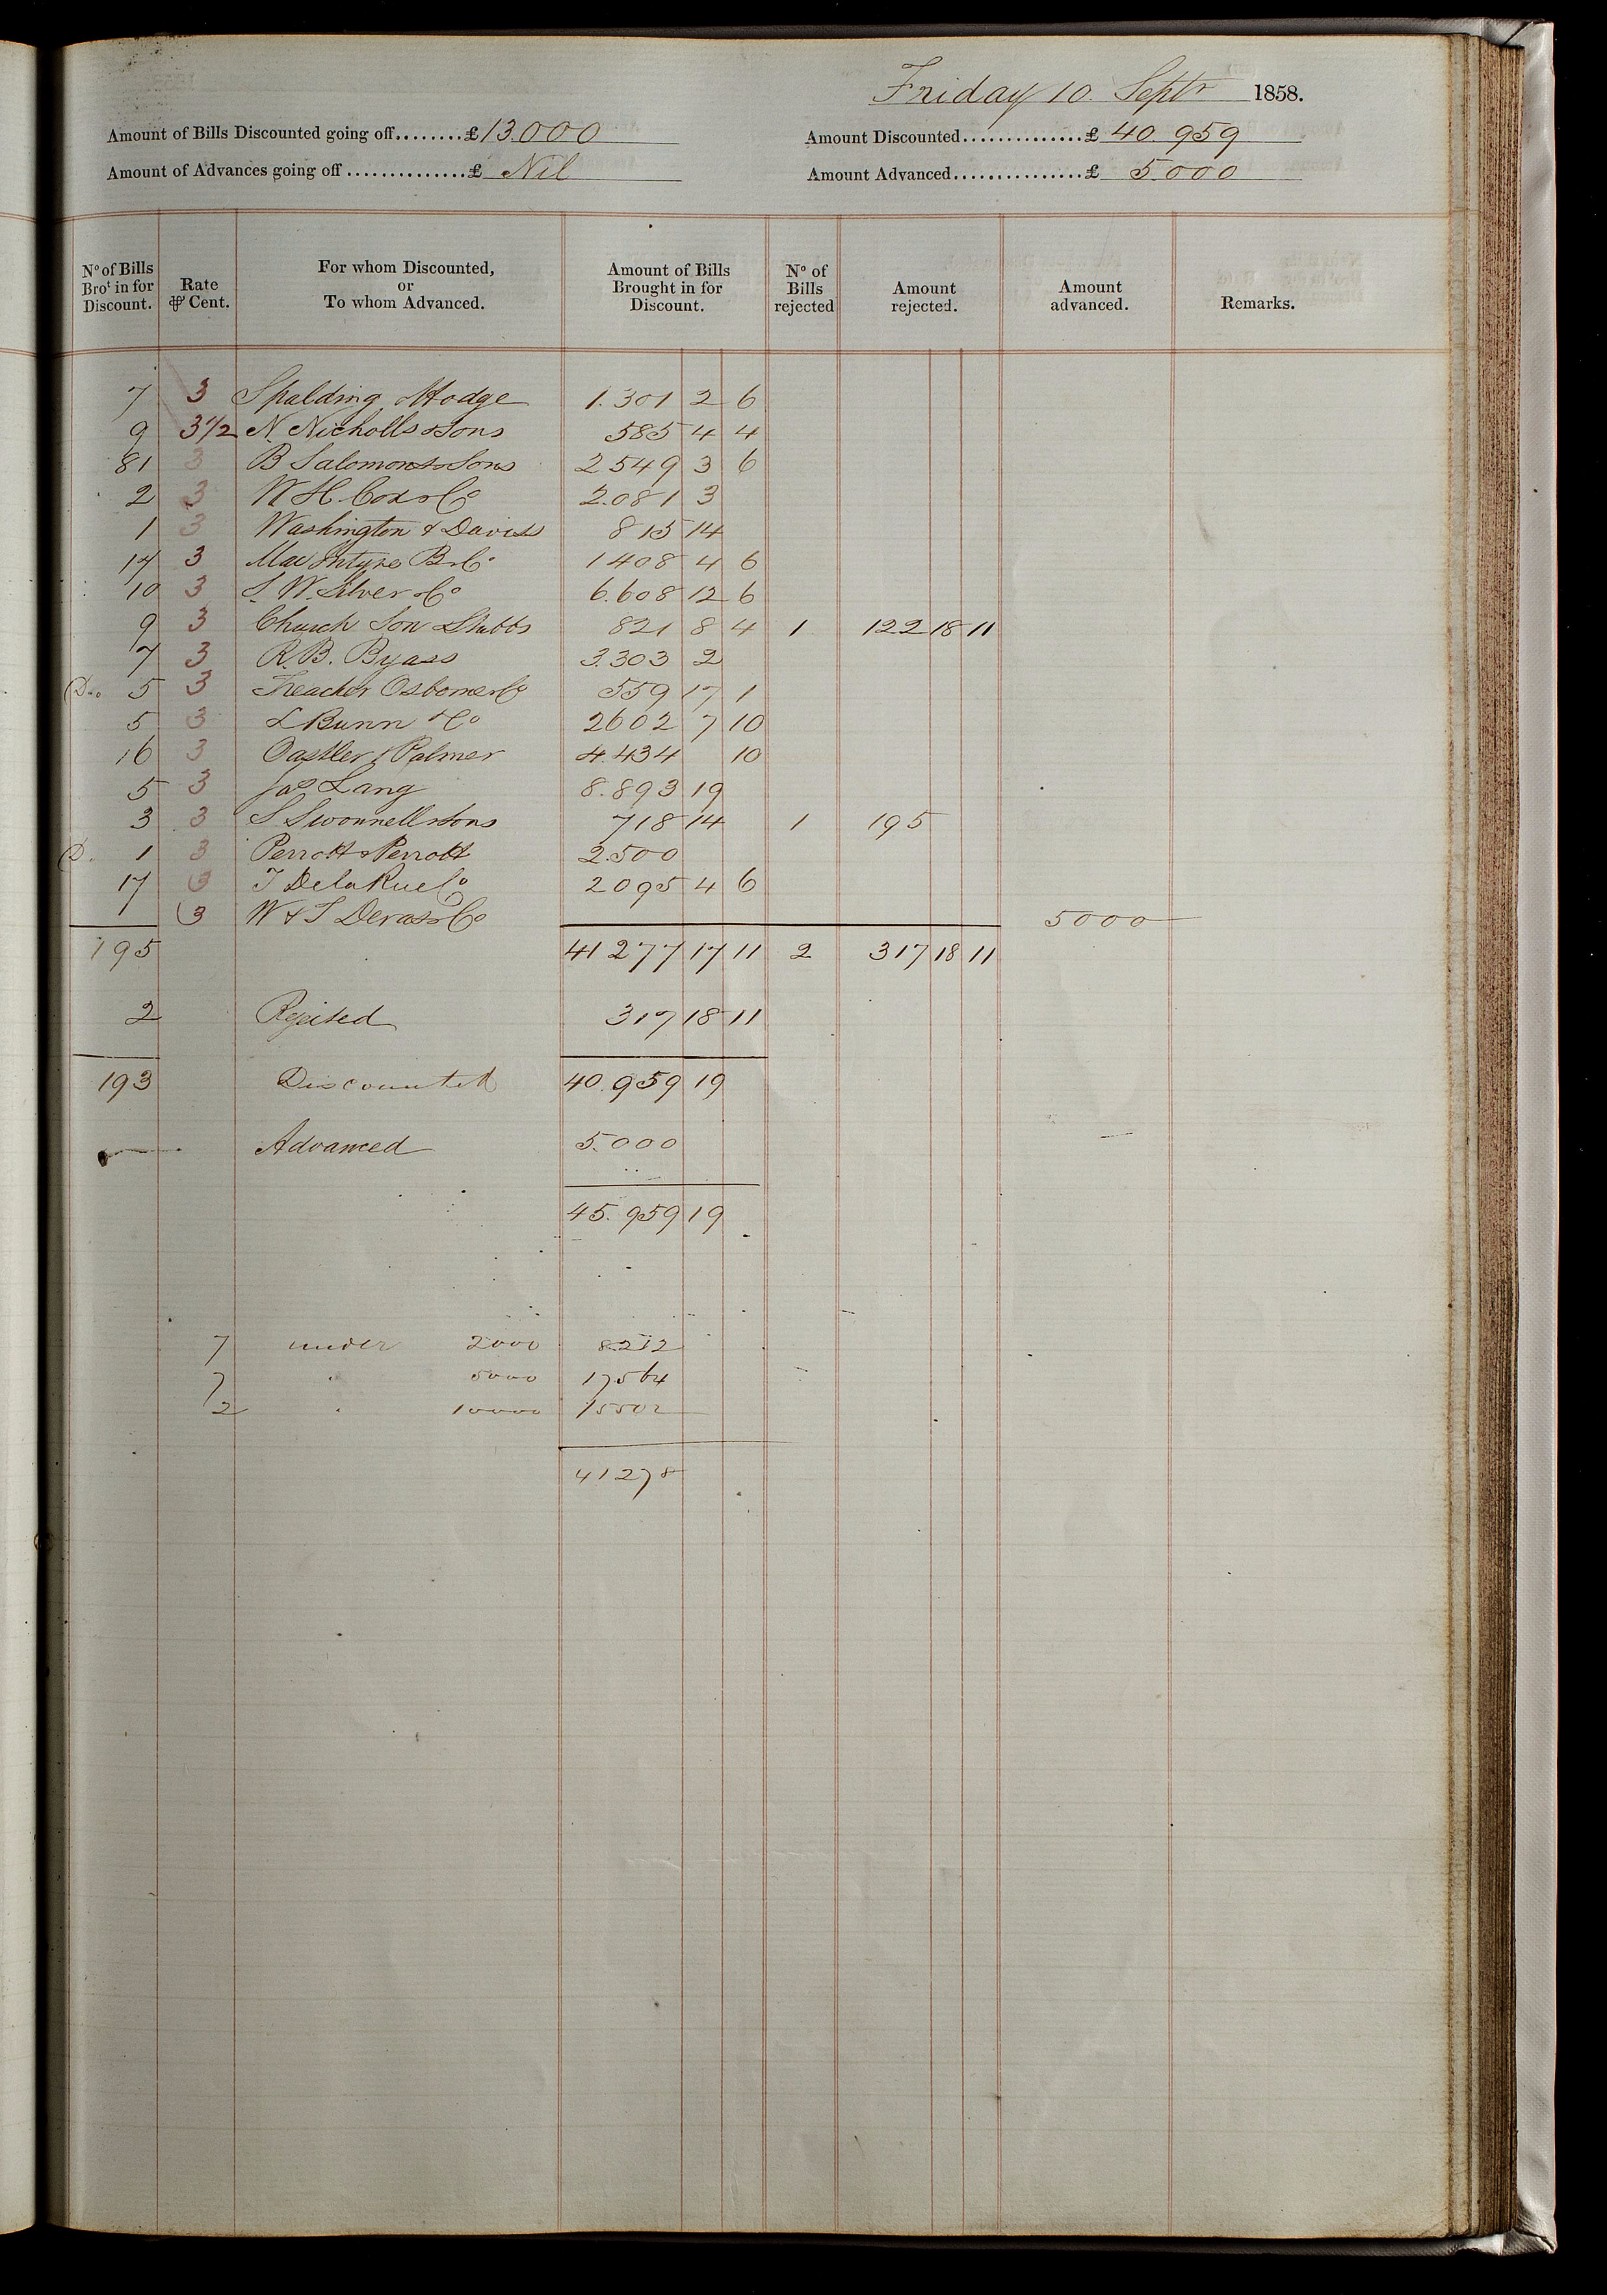 Friday 10. Septr 1858.
Amount of Bills Discounted going off........£ 13.000
Amount Discounted...............£ 40.959
Amount of Advances going off..............£ Nil
Amount Advanced................£ 5.000
No of Bills Brot in for Discount. Rate ⅌ Cent. For whom Discounted, or To whom Advanced. Amount of Bills Brought in for Discount. No of Bills rejected Amount rejected. Amount advanced. Remarks.
7 3 Spalding & Hodge 1.301 2 6
9 3 1/2 N. Nicholls & Sons 585 4 4
81 3 B Salomons & Sons 2549 3 6
2 3 W H. Cox & Co 2.081 3
1 3 Washington & Daviss 815 14
17 3 MacIntyre B & Co 1408 4 6
10 3 S. W. Silver & Co 6.608 12 6
9 3 Church Son & Stubbs 821 8 4 1 122 18 11
7 3 R. B. Byass 3.303 2
5 3 Treacher Osborne & Co 559 17 1
5 3 L Bunn & Co 2602 7 10
16 3 Oastler & Palmer 4.434 10
5 3 Jas Lang 8.893 19
3 3 S Swonnell & Sons 718 14 1 195
D. 1 3 Perrott & Perrott 2.500
17 3 T Dela Rue Co 2095 4 6
3 W & T Devas & Co 5000
195 41277 17 11 2 317 18 11
2 Rejected 317 18 11
193 Discounted 40.959 19
Advanced 5.000
45.959 19
7 under 2000 8212
7 " 5000 17564
2 " 10000 15502
41278